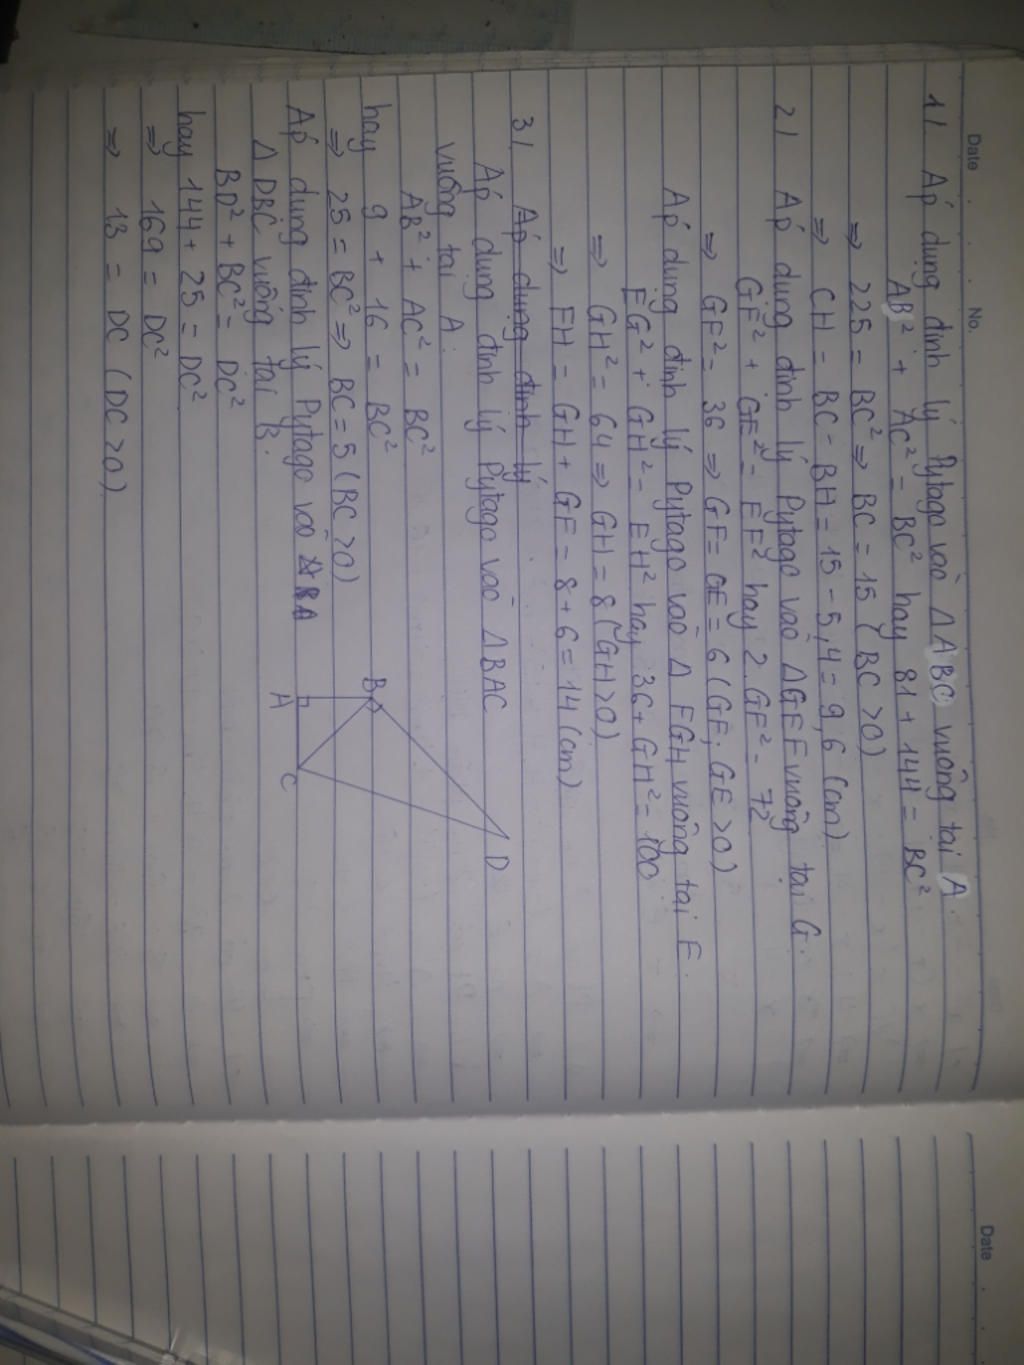 Date . . . No.
1/. Áp dụng định lý Pytago vào Δ ABC vuông tại A.
AB² + AC² = BC² hay 81 + 144 = BC²
⇒ 225 = BC² ⇒ BC = 15 (BC > 0)
⇒ CH = BC - BH = 15 - 5,4 = 9,6 (cm)
2/ Áp dụng định lý Pytago vào ΔGEF vuông tại G.
GF² + GE² = EF² hay 2.GF² = 72
⇒ GF² = 36 ⇒ GF = GE = 6 (GF; GE > 0)
Áp dụng định lý Pytago vào Δ EGH vuông tại E.
EG² + GH² = EH² hay 36 + GH² = 100
⇒ GH² = 64 ⇒ GH = 8 (GH > 0)
⇒ FH = GH + GF = 8 + 6 = 14 (cm)
3/. Áp dụng định lý
Áp dụng định lý Pytago vào ΔBAC
vuông tại A.
AB² + AC² = BC²
hay 9 + 16 = BC²
⇒ 25 = BC² ⇒ BC = 5 (BC > 0)
Áp dụng định lý Pytago vào
Δ DBC vuông tại B.
BD² + BC² = DC²
hay 144 + 25 = DC²
⇒ 169 = DC²
⇒ 13 = DC (DC > 0)
B
A
C
D
Date .